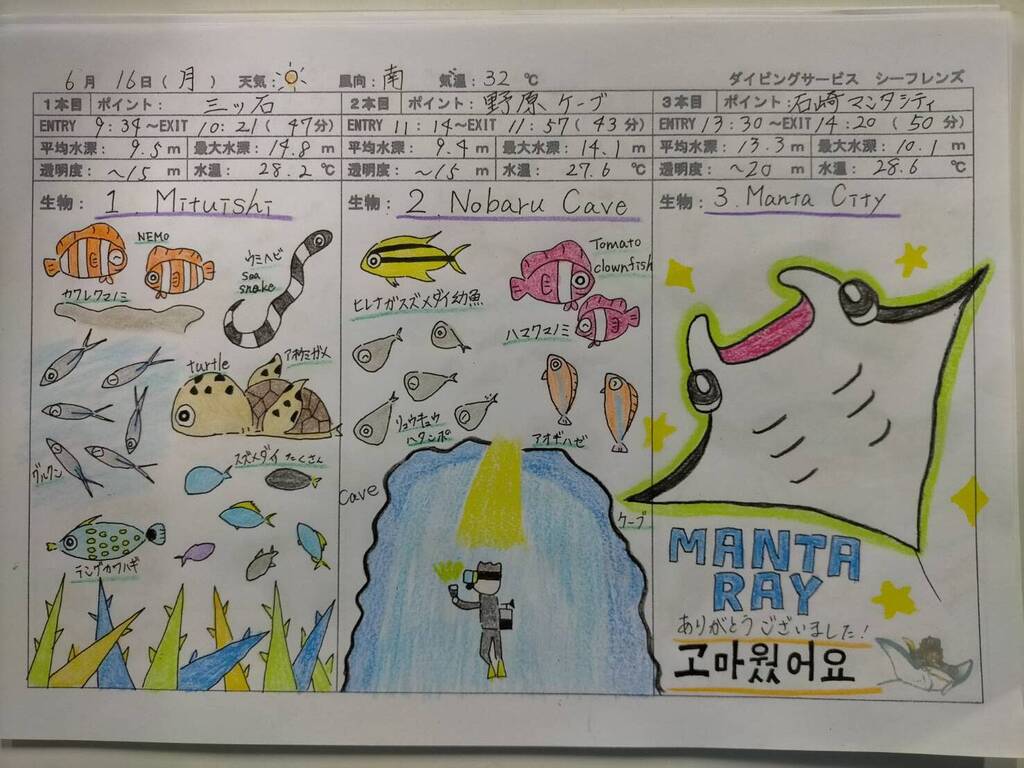 6月 16日(月) 天気: 風向:南 気温:32℃ ダイビングサービス シーフレンズ
1本目 ポイント: 三ッ石
ENTRY 9:34~EXIT 10:21(47分)
平均水深: 9.5m 最大水深: 14.8m
透明度: ~15m 水温: 28.2℃
生物: 1. Mituishi
NEMO
カクレクマノミ
ウミヘビ
sea
snake
turtle
アオウミガメ
グルクン
スズメダイ たくさん
テングカワハギ
2本目 ポイント: 野原ケーブ
ENTRY 11:14~EXIT 11:57(43分)
平均水深: 9.4m 最大水深: 14.1m
透明度: ~15m 水温: 27.6℃
生物: 2. Nobaru Cave
Tomato
clownfish
ヒレナガスズメダイ幼魚
ハマクマノミ
リュウキュウ
ハタンポ
アオギハゼ
Cave
ケーブ
3本目 ポイント: 石崎マンタシティ
ENTRY 13:30~EXIT 14:20(50分)
平均水深: 13.3m 最大水深: 10.1m
透明度: ~20m 水温: 28.6℃
生物: 3. Manta City
MANTA
RAY
ありがとうございました!
고마웠어요